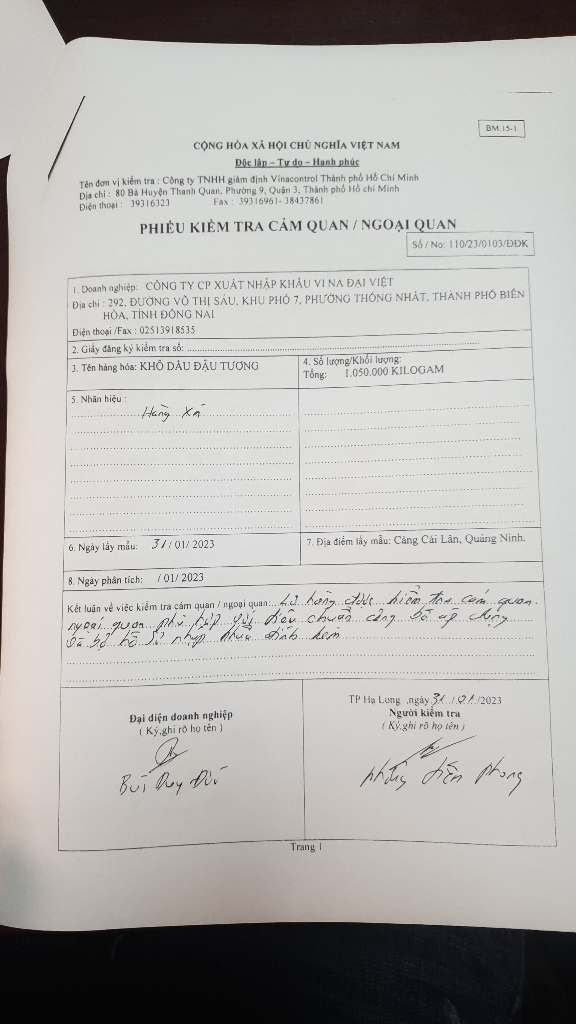 BM.15-1
CỘNG HÒA XÃ HỘI CHỦ NGHĨA VIỆT NAM
Độc lập – Tự do – Hạnh phúc
Tên đơn vị kiểm tra : Công ty TNHH giám định Vinacontrol Thành phố Hồ Chí Minh
Địa chỉ : 80 Bà Huyện Thanh Quan, Phường 9, Quận 3, Thành phố Hồ chí Minh
Điện thoại : 39316323 Fax : 39316961- 38437861
PHIẾU KIỂM TRA CẢM QUAN / NGOẠI QUAN
Số / No: 110/23/0103/ĐDK
1. Doanh nghiệp: CÔNG TY CP XUẤT NHẬP KHẨU VI NA ĐẠI VIỆT
Địa chỉ : 292, ĐƯỜNG VÕ THỊ SÁU, KHU PHỐ 7, PHƯỜNG THỐNG NHẤT, THÀNH PHỐ BIÊN
HÒA, TỈNH ĐỒNG NAI
Điện thoại /Fax : 02513918535
2. Giấy đăng ký kiểm tra số:
3. Tên hàng hóa: KHÔ DẦU ĐẬU TƯƠNG
4. Số lượng/Khối lượng:
Tổng: 1.050.000 KILOGAM
5. Nhãn hiệu :
Hàng Xá
6. Ngày lấy mẫu: 31/ 01/ 2023
7. Địa điểm lấy mẫu: Cảng Cái Lân, Quảng Ninh.
8. Ngày phân tích: / 01/ 2023
Kết luận về việc kiểm tra cảm quan / ngoại quan: Lô hàng được kiểm tra cảm quan
ngoại quan phù hợp với tiêu chuẩn công bố áp dụng
và bộ hồ sơ nhập khẩu đính kèm
TP Hạ Long ,ngày 31 / 01 /2023
Đại diện doanh nghiệp
( Ký,ghi rõ họ tên )
Người kiểm tra
( Ký,ghi rõ họ tên )
Bùi Duy
Phong
Trang 1